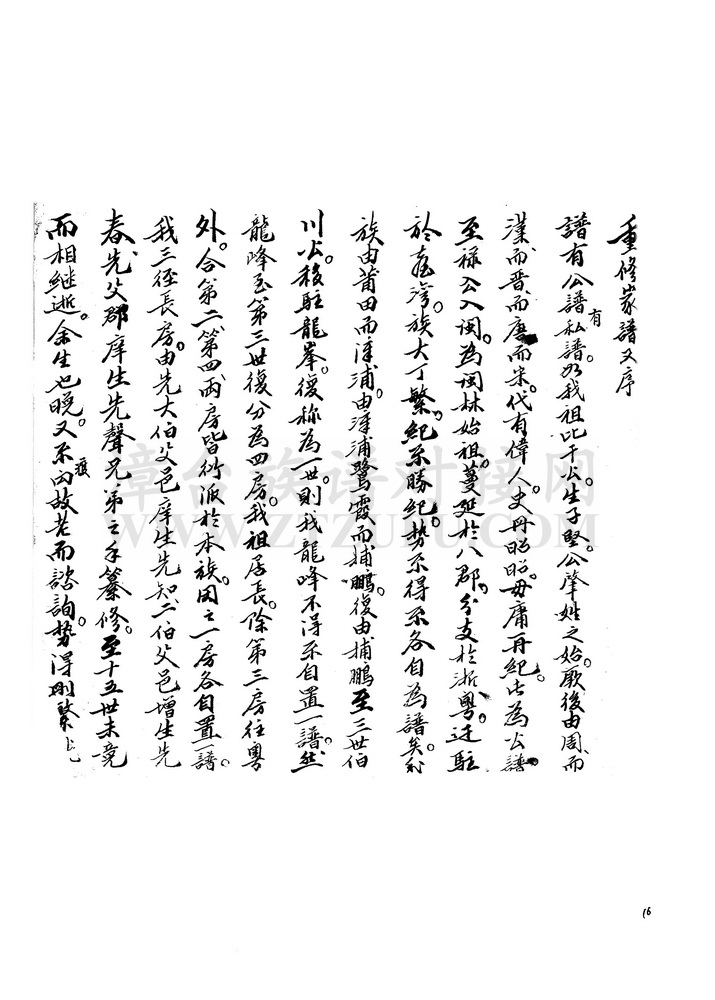 重修家譜又序
譜有公譜有私譜。如我祖比干公。生子堅公肇姓之始。厥後由周而
漢而晋而唐而宋。代有偉人史册昭昭毋庸再紀。此為公譜
至祿公入閩。為閩林始祖。蔓延於八郡。分支於浙粵。迁駐
於臺灣。族大丁繁。紀不勝紀。势不得不各自為譜矣。我
族由莆田而漳浦。由漳浦鷺霞而埔鵬。後由埔鵬至三世伯
川公。移駐龍峯。復称為一世。則我龍峰不得不自置一譜。然
龍峰至第三世復分為四房。我祖居長。除第三房往粵
外。合第二第四两房皆衍派於本族。因之一房各自置一譜。
我三徑長房。由先大伯父邑庠生先知二伯父邑增生先
春。先父郡庠生先聲兄弟之手纂修。至十五世未竟
而相继逝。余生也晚。又不内故老而諮詢。势得刪繁
章台族谱对接网
WWW.ZTZUPU.COM
16